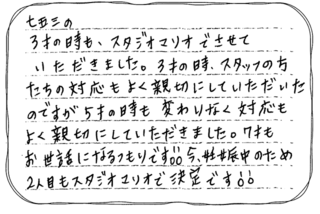 七五三の
3才の時も、スタジオマリオでさせて
いただきました。3才の時、スタッフの方
たちの対応もよく親切にしていただいた
のですが5才の時も変わりなく対応も
よく親切にしていただきました。7才も
お世話になるつもりです!!今、妊娠中のため
2人目もスタジオマリオで決定です!!